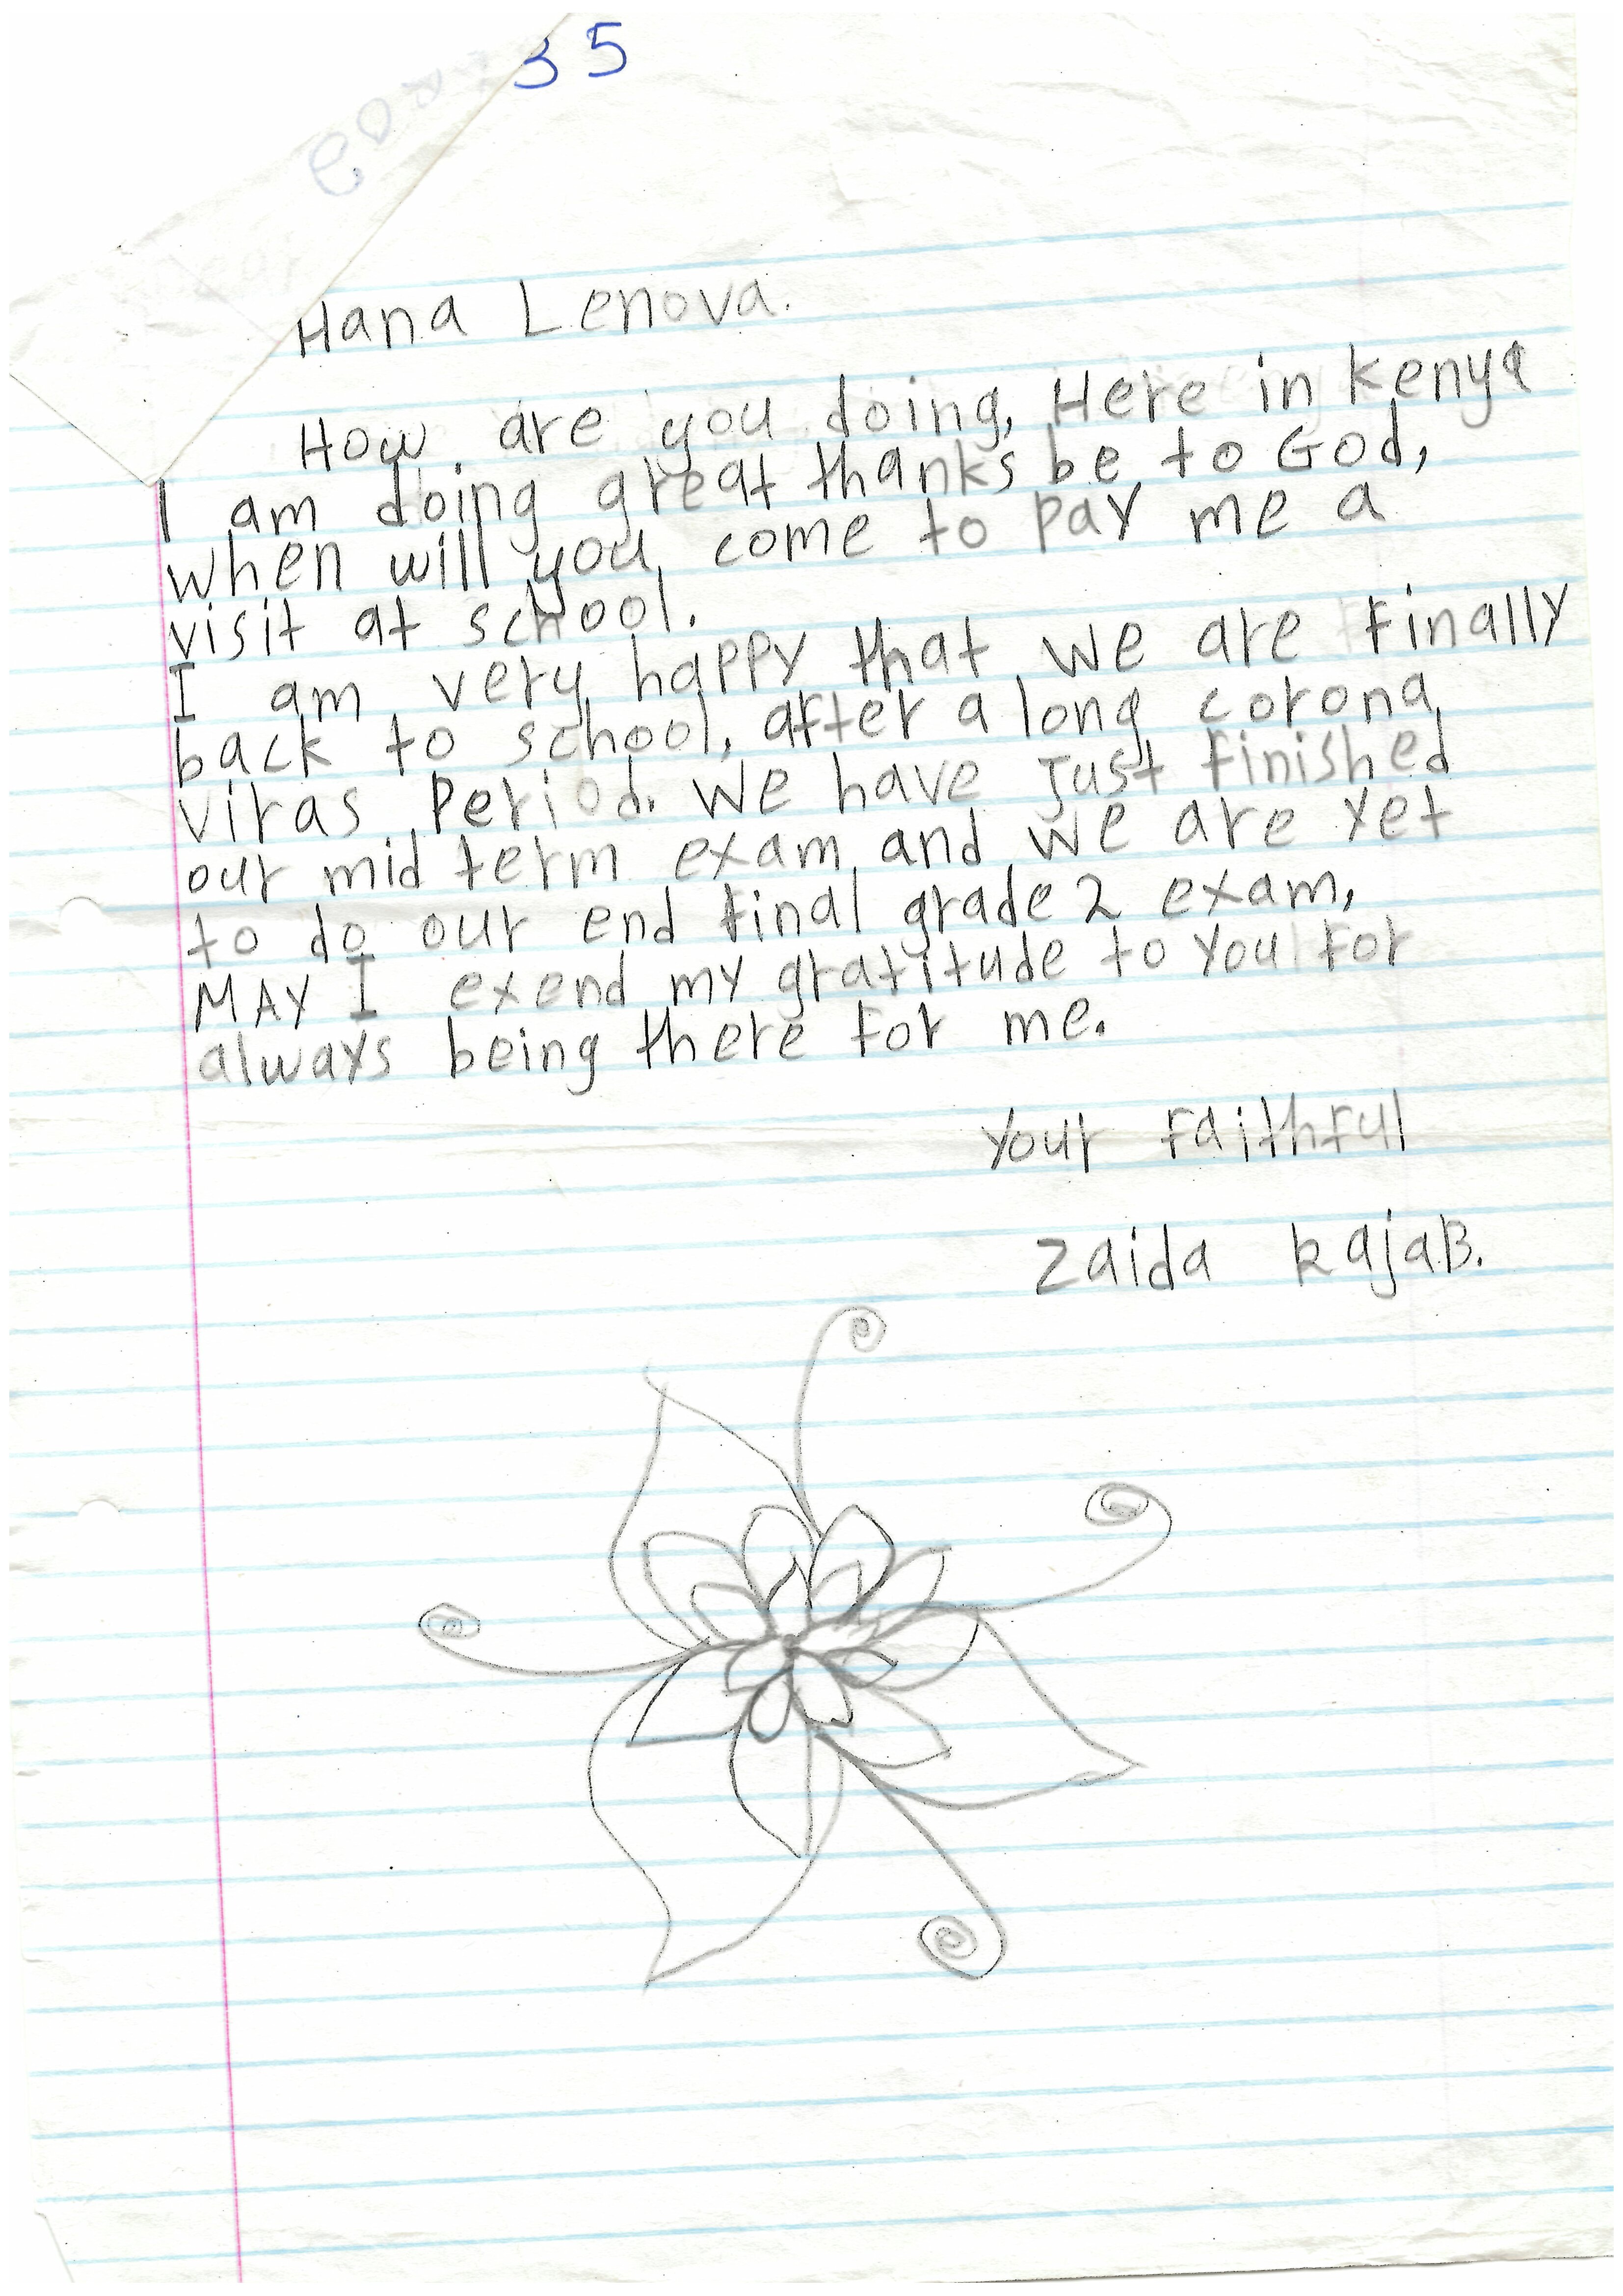 35
Hana Lenova.
How are you doing, Here in kenya
I am doing great thanks be to God,
when will you come to pay me a
visit at school.
I am very happy that we are finally
back to school, after a long corona
viras period. We have just finished
our mid term exam and we are yet
to do our end final grade 2 exam,
MAY I exend my gratitude to you for
always being there for me.
Your faithful
Zaida RajaB.